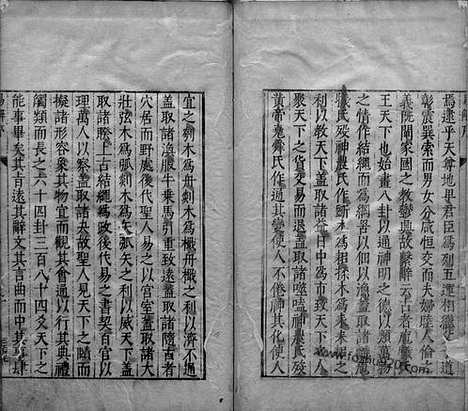 焉逮乎天尊地卑君臣爲列五運相繼父子道
彰震巽索而男女分咸恒交而夫婦
義既闡家國之教變典故繫辭云古者庖犧
王天下也始畫八卦以通神明之德以類萬物
之情作結繩而爲網罟以佃以漁蓋取諸離庖
犧氏殁神農氏作斲木爲耜揉木爲耒耒耨之
利以教天下蓋取諸益日中爲市致天下
聚天下之貨交易而退蓋取諸噬嗑神農氏殁
黄帝堯舜氏作通其變使人不倦神其化使人
宜之刳木爲舟剡木爲檝舟檝之利以濟不通
蓋取諸渙服牛乗馬引重致遠蓋取諸隨古者
穴居而野處後代聖人易之以宮室蓋取諸大
壯弦木爲弧剡木爲矢弧矢之利以威天下蓋
取諸睽上古結繩爲政後代易之以書契百官以
理萬人以察蓋取諸夬故聖人見天下之賾而
擬諸形容象其物宜而觀其會通以行其典禮
觸類而長之六十四卦三百八十四爻天下之
能事畢矣其㫖遠其辭文其言曲而中其事肆